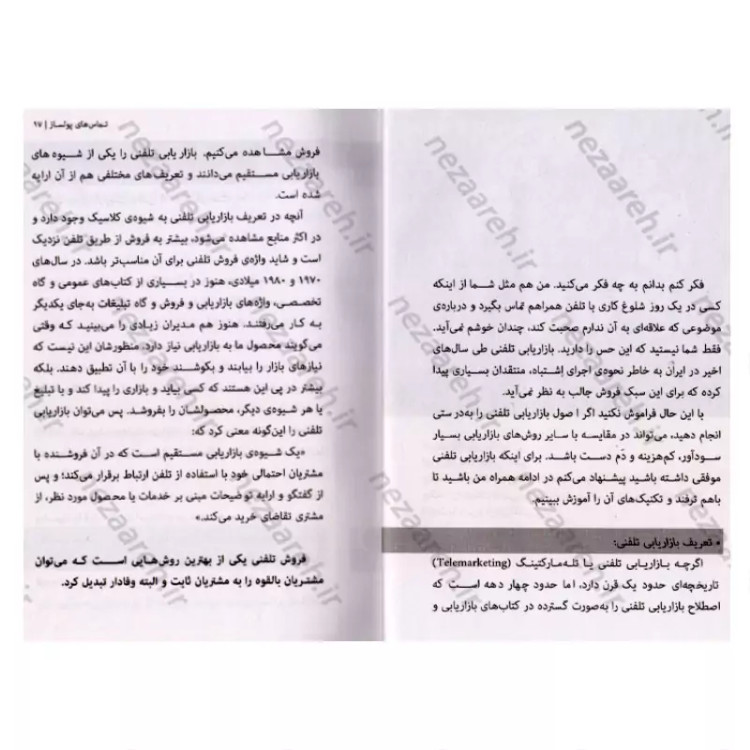 فکر کنم بدانم به چه فکر می‌کنید. من هم مثل شما از اینکه
کسی در یک روز شلوغ کاری با تلفن همراهم تماس بگیرد و درباره‌ی
موضوعی که علاقه‌ای به آن ندارم صحبت کند، چندان خوشم نمی‌آید.
فقط شما نیستید که این حس را دارید. بازاریابی تلفنی طی سال‌های
اخیر در ایران به خاطر نحوه‌ی اجرای اشتباه، منتقدان بسیاری پیدا
کرده که برای این سبک فروش جالب به نظر نمی‌آید.
با این حال فراموش نکنید اگر اصول بازاریابی تلفنی را به‌درستی
انجام دهید، می‌تواند در مقایسه با سایر روش‌های بازاریابی بسیار
سودآور، کم‌هزینه و دَم دست باشد. برای اینکه بازاریابی تلفنی
موفقی داشته باشید پیشنهاد می‌کنم در ادامه همراه من باشید تا
باهم ترفند و تکنیک‌های آن را آموزش ببینیم.
• تعریف بازاریابی تلفنی:
اگرچه بازاریابی تلفنی یا تله‌مارکتینگ (Telemarketing)
تاریخچه‌ای حدود یک قرن دارد. اما حدود چهار دهه است که
اصطلاح بازاریابی تلفنی را به‌صورت گسترده در کتاب‌های بازاریابی و
تماس‌های پولساز | ۹۷
فروش مشاهده می‌کنیم. بازاریابی تلفنی را یکی از شیوه‌های
بازاریابی مستقیم می‌دانند و تعریف‌های مختلفی هم از آن ارایه
شده است.
آنچه در تعریف بازاریابی تلفنی به شیوه‌ی کلاسیک وجود دارد و
در اکثر منابع مشاهده می‌شود، بیشتر به فروش از طریق تلفن نزدیک
است و شاید واژه‌ی فروش تلفنی برای آن مناسب‌تر باشد. در سال‌های
۱۹۷۰ و ۱۹۸۰ میلادی، هنوز در بسیاری از کتاب‌های عمومی و گاه
تخصصی، واژه‌های بازاریابی و فروش و گاه تبلیغات به‌جای یکدیگر
به کار می‌رفتند. هنوز هم مدیران زیادی را می‌بینید که وقتی
می‌گویند محصول ما به بازاریابی نیاز دارد، منظورشان این نیست که
نیازهای بازار را بیابند و بکوشند خود را با آن تطبیق دهند. بلکه
بیشتر در پی این هستند که کسی بیاید و بازاری را پیدا کند و با تبلیغ
یا هر شیوه‌ی دیگر، محصولشان را بفروشد. پس می‌توان بازاریابی
تلفنی را این‌گونه معنی کرد که:
«یک شیوه‌ی بازاریابی مستقیم است که در آن فروشنده با
مشتریان احتمالی خود با استفاده از تلفن ارتباط برقرار می‌کند؛ و پس
از گفتگو و ارایه توضیحات مبنی بر خدمات یا محصول مورد نظر، از
مشتری تقاضای خرید می‌کند.»
فروش تلفنی یکی از بهترین روش‌هایی است که می‌توان
مشتریان بالقوه را به مشتریان ثابت و البته وفادار تبدیل کرد.
nezaareh.ir
nezaareh.ir
nezaareh.ir
nezaareh.ir
nezaareh.ir
nezaareh.ir
nezaareh.ir
nezaareh.ir